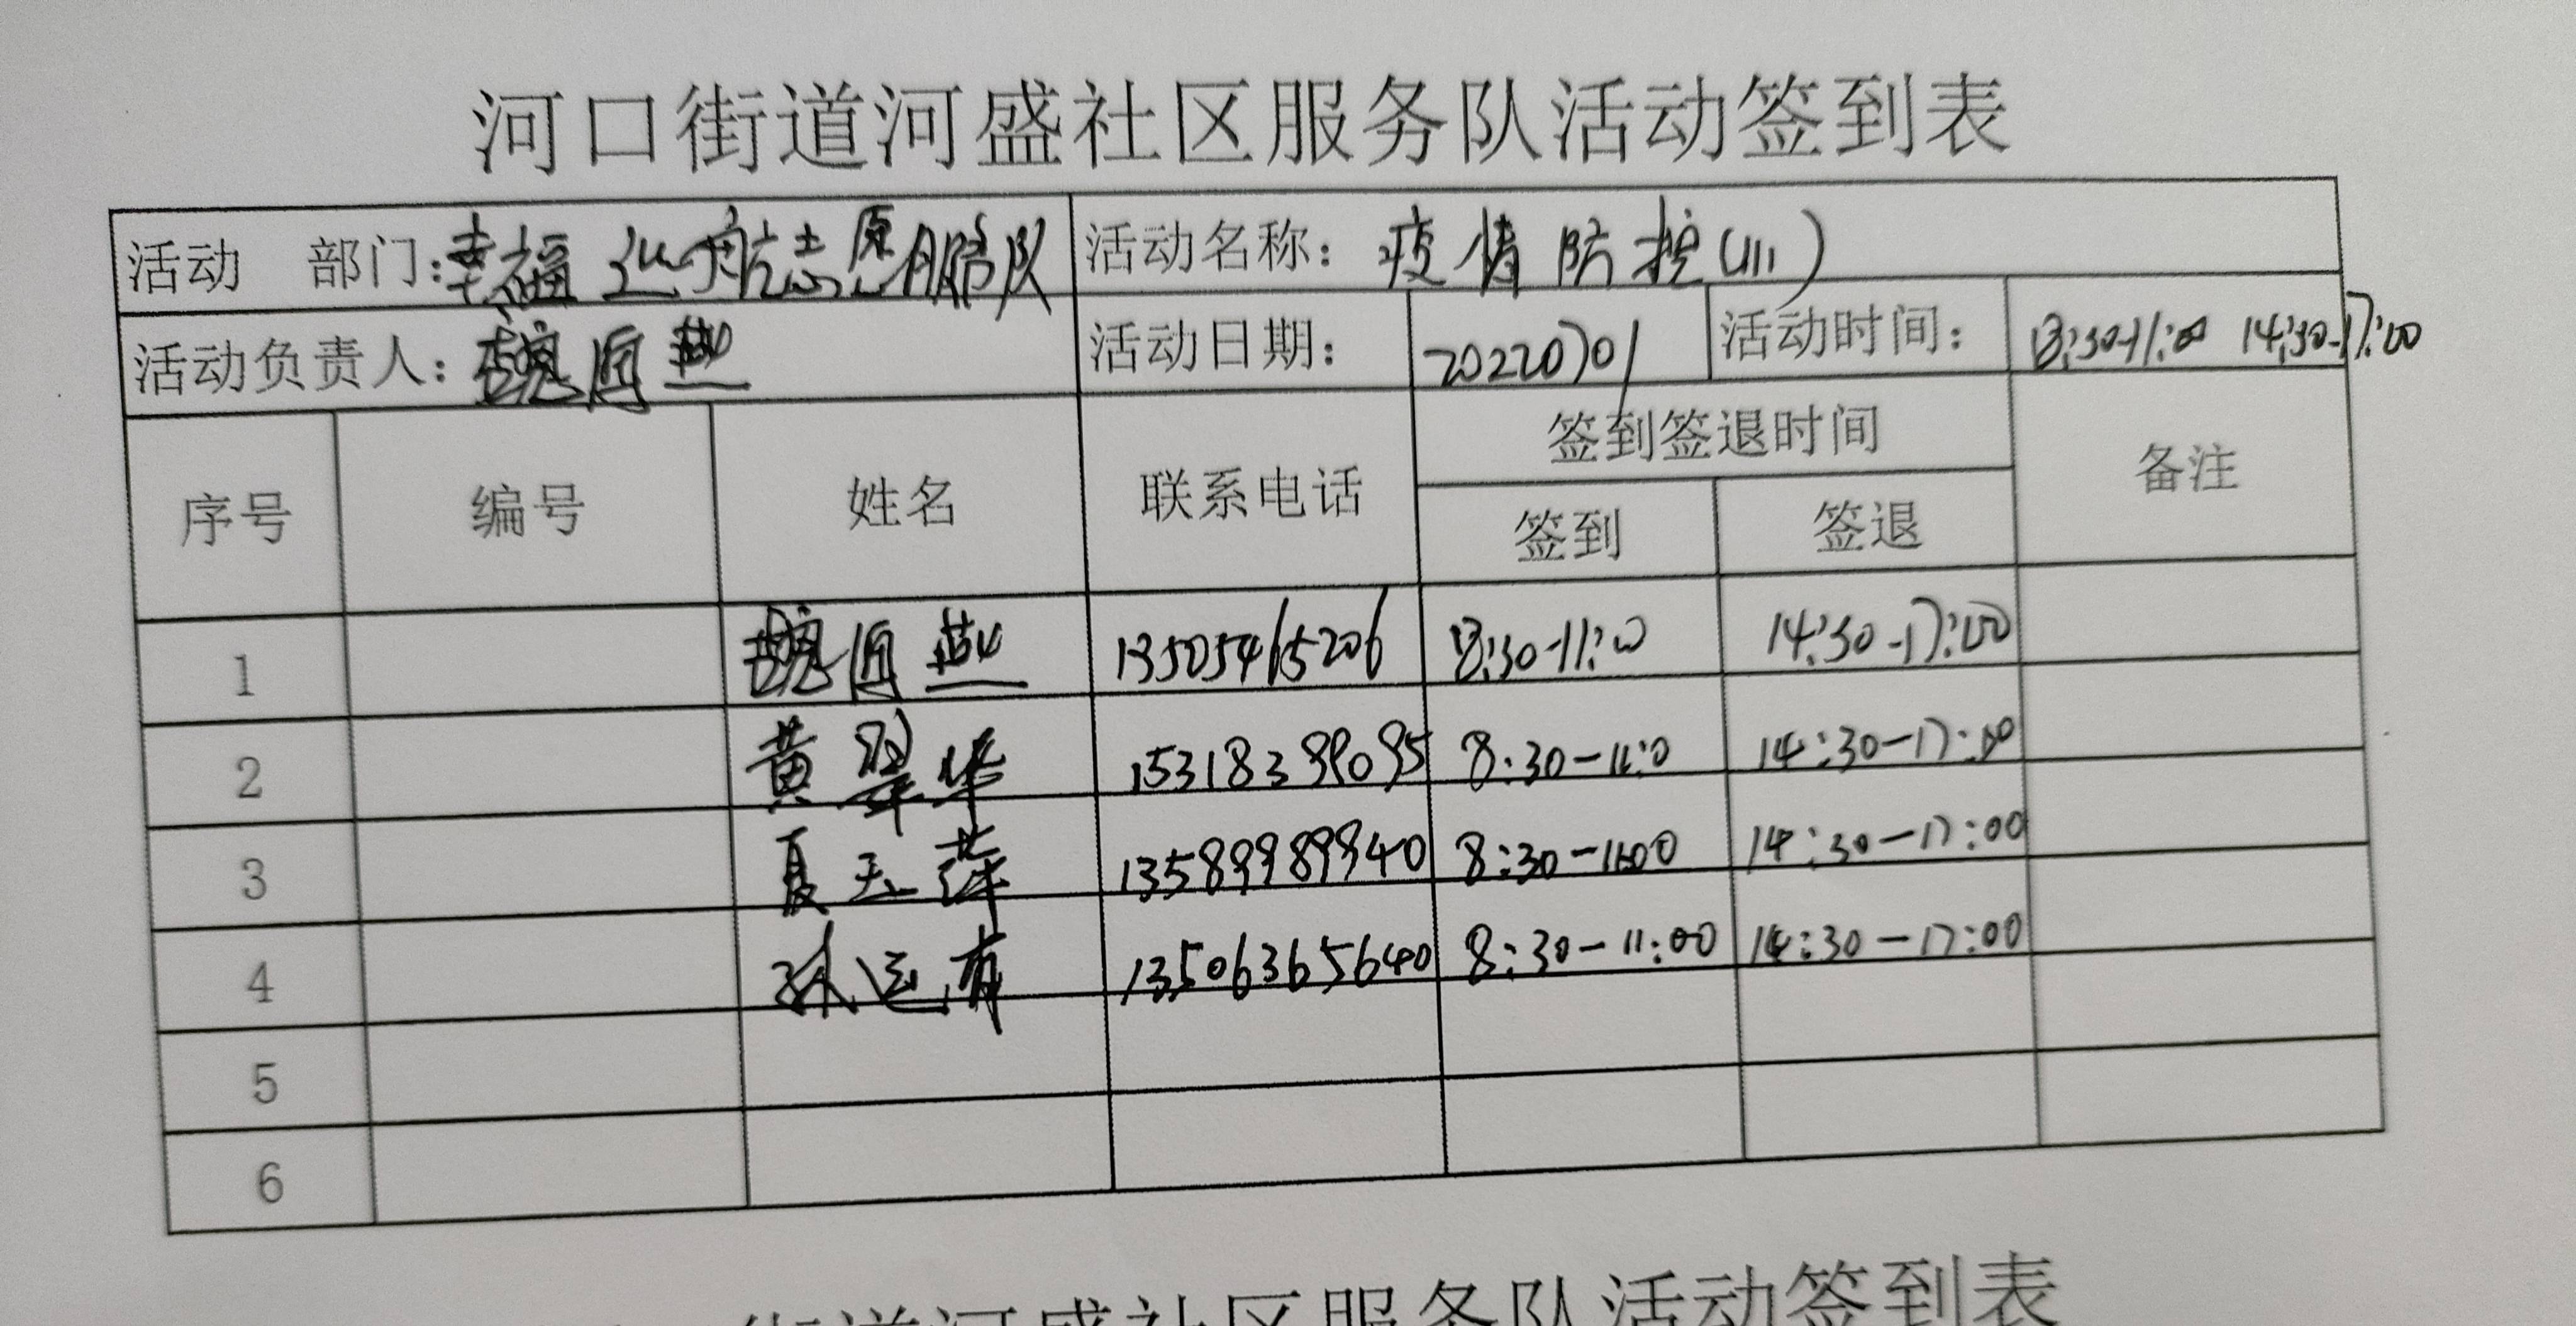 河口街道河盛社区服务队活动签到表
活动 部门:幸福巡航志愿服务队 活动名称: 疫情防控(111)
活动负责人: 魏 燕 活动日期: 20220701 活动时间: 8:30-11:00 14:30-17:00
序号 编号 姓名 联系电话 签到签退时间 备注
签到 签退
1 魏 燕 13505465206 8:30-11:00 14:30-17:00
2 黄翠华 15318399095 8:30-11:0 14:30-17:00
3 夏玉萍 13589989940 8:30-11:00 14:30-17:00
4 孙运 13506365640 8:30-11:00 14:30-17:00
5
6
街道河盛社区服务队活动签到表